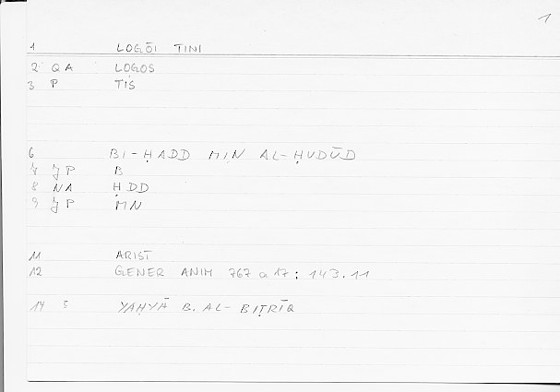 1
1 LOGŌI TINI
2 QA LOGOS
3 P TIS
6 BI-ḤADD MIN AL-ḤUDŪD
7 JP B
8 NA ḤDD
9 JP MN
11 ARIST
12 GENER ANIM 767 a 17 ; 143.11
14 3 YAḤYĀ B. AL-BIṬRĪQ